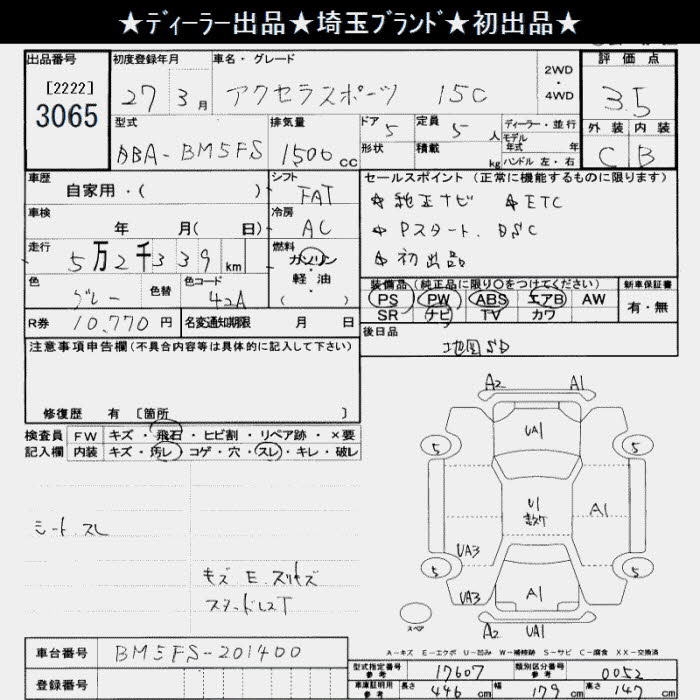 ★ディーラー出品★埼玉ブランド★初出品★
出品番号 初度登録年月 車名・グレード 2WD ・ 4WD 評価点
[2222]
3065
27年 3月 アクセラスポーツ 15C 3.5
型式 排気量 ドア 5 定員 5人 ディーラー・並行 外装 内装
DBA-BM5FS 1500cc 形状 積載 kg モデル年式 年 ハンドル 左・右 C B
車歴 自家用・( ) シフト FAT
車検 年 月( 日) 冷房 AC
走行 5万2千339km 燃料 ガソリン・軽油 ( )
色 グレー 色替 色コード 42A
R券 10,770円 名変通知期限 月 日
セールスポイント (正常に機能するものに限ります)
☆純正ナビ ☆ETC
☆Pスタート. DSC
☆初出品
装備品(純正品に限り○をつけてください) 新車保証書
PS PW ABS エアB AW 有・無
SR ナビ TV カワ
後日品
地図SD
注意事項申告欄(不具合内容等は具体的に記入して下さい)
修復歴 有 [箇所 ]
検査員 FW キズ・飛石・ヒビ割・リペア跡・×要
記入欄 内装 キズ・汚レ・コゲ・穴・スレ・キレ・破レ
シートスレ
キズ E スリキズ
スタッドレスT
A2 A1
UA1
5 5
U1
A1
UA3
5 5
UA3 A1
スペア
A2 UA1
A-キズ E-エクボ U-凹み W-補修跡 S-サビ C-腐食 XX-交換済
車台番号 BM5FS-201400
登録番号
型式指定番号 参考 17607 類別区分番号 参考 0052
車庫証明用 参考 長さ 446cm 幅 179cm 高さ 147cm